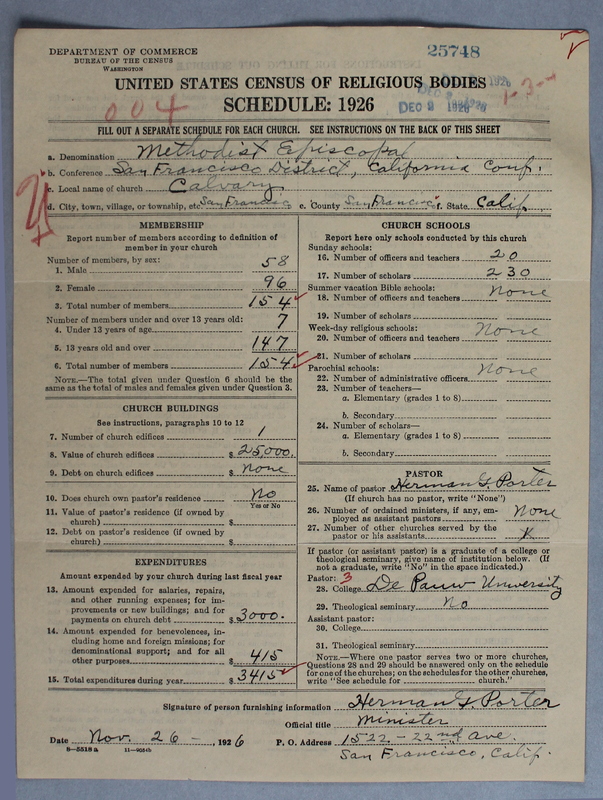 DEPARTMENT OF COMMERCE
BUREAU OF THE CENSUS
WASHINGTON
25748
UNITED STATES CENSUS OF RELIGIOUS BODIES
SCHEDULE: 1926
004
DEC 2 1926
1-3-
FILL OUT A SEPARATE SCHEDULE FOR EACH CHURCH. SEE INSTRUCTIONS ON THE BACK OF THIS SHEET
a. Denomination Methodist Episcopal
b. Conference San Francisco District, California Conf.
c. Local name of church Calvary
d. City, town, village, or township, etc San Francisco e. County San Francisco f. State Calif.
MEMBERSHIP
Report number of members according to definition of member in your church
Number of members, by sex:
1. Male 58
2. Female 96
3. Total number of members 154
Number of members under and over 13 years old:
4. Under 13 years of age 7
5. 13 years old and over 147
6. Total number of members 154
NOTE.—The total given under Question 6 should be the same as the total of males and females given under Question 3.
CHURCH BUILDINGS
See instructions, paragraphs 10 to 12
7. Number of church edifices 1
8. Value of church edifices $ 25,000.
9. Debt on church edifices $ None
10. Does church own pastor's residence No
Yes or No
11. Value of pastor's residence (if owned by church) $
12. Debt on pastor's residence (if owned by church) $
EXPENDITURES
Amount expended by your church during last fiscal year
13. Amount expended for salaries, repairs, and other running expenses; for improvements or new buildings; and for payments on church debt $ 3000.
14. Amount expended for benevolences, including home and foreign missions; for denominational support; and for all other purposes $ 415
15. Total expenditures during year $ 3415
CHURCH SCHOOLS
Report here only schools conducted by this church
Sunday schools:
16. Number of officers and teachers 20
17. Number of scholars 230
Summer vacation Bible schools:
18. Number of officers and teachers None
19. Number of scholars
Week-day religious schools:
20. Number of officers and teachers None
21. Number of scholars
Parochial schools:
22. Number of administrative officers None
23. Number of teachers—
a. Elementary (grades 1 to 8)
b. Secondary
24. Number of scholars—
a. Elementary (grades 1 to 8)
b. Secondary
PASTOR
25. Name of pastor Herman G. Porter
(If church has no pastor, write "None")
26. Number of ordained ministers, if any, employed as assistant pastors None
27. Number of other churches served by the pastor or his assistants
If pastor (or assistant pastor) is a graduate of a college or theological seminary, give name of institution below. (If not a graduate, write "No" in the space indicated.)
Pastor: 3
28. College De Pauw University
29. Theological seminary No
Assistant pastor:
30. College
31. Theological seminary
NOTE.—Where one pastor serves two or more churches, Questions 28 and 29 should be answered only on the schedule for one of the churches; on the schedules for the other churches, write "See schedule for church."
Signature of person furnishing information Herman G. Porter
Official title Minister
Date Nov. 26 -, 1926 P. O. Address 1522 - 22nd Ave.
San Francisco, Calif.
8—5518a